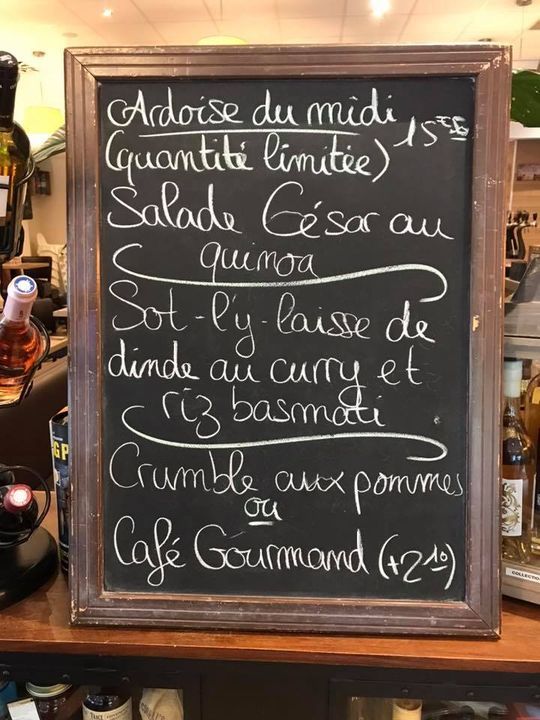 Ardoise du midi
(quantité limitée) 15€
Salade César au
quinoa
Sot-l'y-laisse de
dinde au curry et
riz basmati
Crumble aux pommes
ou
Café Gourmand (+2,10)
COLLECTION